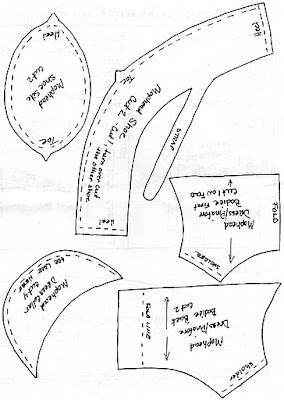 Heel
Mophead
Shoe Sole
Cut 2
Toe
Heel
Toe
Mophead Shoe
Cut 2. Cut 1, turn over cut
the other shoe.
STRAP
Heel
Mophead
Dress/Pinafore
Bodice Front
Cut 1 on Fold
FOLD
Shoulder
Mophead
Dress Collar
Cut 4
LACE
Mophead
Dress/Pinafore
Bodice Back
Cut 2
FOLD LINE
Shoulder